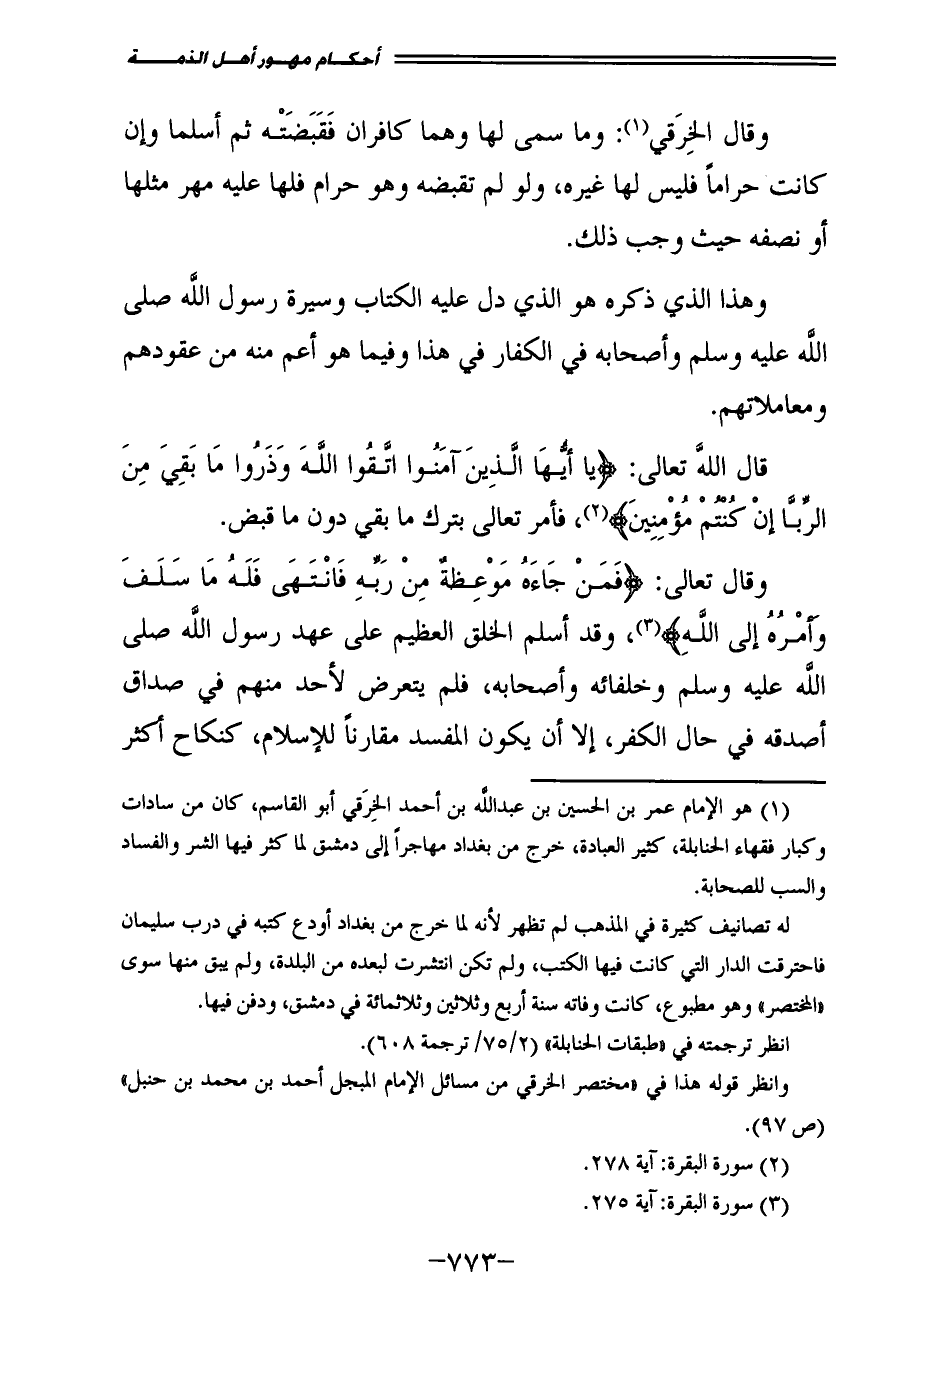 أحكـــام مهـــور أهـــل الذمـــــة
وقال الخِرَقي(١): وما سمى لها وهما كافران فَقَبَضَتْـه ثم أسلما وإن
كانت حراماً فليس لها غيره، ولو لم تقبضه وهو حرام فلها عليه مهر مثلها
أو نصفه حيث وجب ذلك.
وهذا الذي ذكره هو الذي دل عليه الكتاب وسيرة رسول اللَّه صلى
اللَّه عليه وسلم وأصحابه في الكفار في هذا وفيما هو أعم منه من عقودهم
ومعاملاتهم.
قال اللهَّ تعالى: ﴿يا أَيُّـهَا الَّـذِينَ آمَنُـوا اتَّـقُوا اللَّـهَ وَذَرُوا مَا بَقِيَ مِنَ
الرِّبَّـا إِنْ كُنْتُمْ مُؤْمِنِينَ﴾(٢)، فأمر تعالى بترك ما بقي دون ما قبض.
وقال تعالى: ﴿فَمَـنْ جَاءَهُ مَوْعِـظةٌ مِنْ رَبِّـهِ فَانْتَـهَى فَلَـهُ مَا سَـلَـفَ
وَأَمْـرُهُ إلى اللَّـهِ﴾(٣)، وقد أسلم الخلق العظيم على عهد رسول اللَّه صلى
اللَّه عليه وسلم وخلفائه وأصحابه، فلم يتعرض لأحد منهم في صداق
أصدقه في حال الكفر، إلا أن يكون المفسد مقارناً للإسلام، كنكاح أكثر
(١) هو الإمام عمر بن الحسين بن عبداللَّه بن أحمد الخِرَقي أبو القاسم، كان من سادات
وكبار فقهاء الحنابلة، كثير العبادة، خرج من بغداد مهاجراً إلى دمشق لما كثر فيها الشر والفساد
والسب للصحابة.
له تصانيف كثيرة في المذهب لم تظهر لأنه لما خرج من بغداد أودع كتبه في درب سليمان
فاحترقت الدار التي كانت فيها الكتب، ولم تكن انتشرت لبعده من البلدة، ولم يبق منها سوى
«المختصر» وهو مطبوع، كانت وفاته سنة أربع وثلاثين وثلاثمائة في دمشق، ودفن فيها.
انظر ترجمته في «طبقات الحنابلة» (٧٥/٢/ ترجمة ٦٠٨).
وانظر قوله هذا في «مختصر الخرقي من مسائل الإمام المبجل أحمد بن محمد بن حنبل»
(ص ٩٧).
(٢) سورة البقرة: آية ٢٧٨.
(٣) سورة البقرة: آية ٢٧٥.
-٧٧٣-